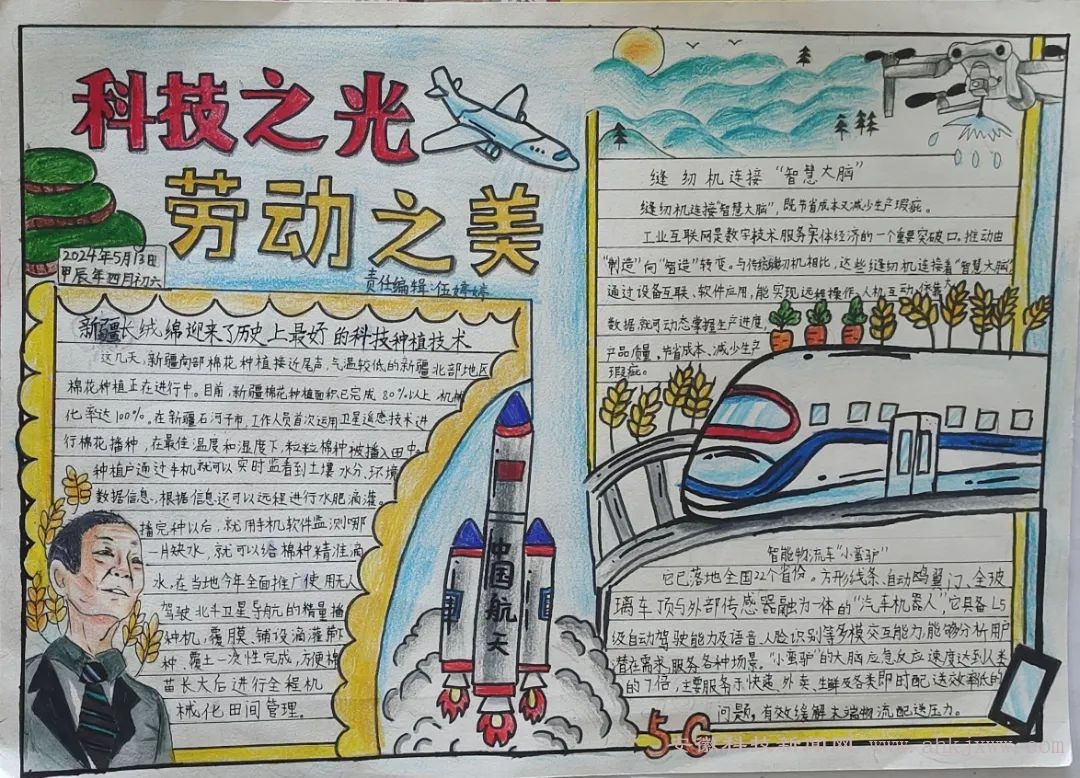 科技之光
劳动之美
2024年5月13日
甲辰年四月初六
责任编辑:伍婷婷
新疆长绒绵迎来了历史上最好的科技种植技术
这几天,新疆南部棉花种植接近尾声,气温较低的新疆北部地区
棉花种植正在进行中。目前,新疆棉花种植面积已完成80%以上,机械
化率达100%。在新疆石河子市,工作人员首次运用卫星遥感技术进
行棉花播种,在最佳温度和湿度下,粒粒棉种被播入田中
种植户通过手机就可以实时监看到土壤水分,环境
数据信息,根据信息还可以远程进行水肥滴灌。
播完种以后,就用手机软件监测哪
一片缺水,就可以给棉种精准滴
水,在当地今年全面推广使用无人
驾驶北斗卫星导航的精量播
种机,覆膜、铺设滴灌带、下
种、覆土一次性完成,方便棉
苗长大后进行全程机
械化田间管理。
中国航天
缝纫机连接“智慧大脑”
缝纫机连接“智慧大脑”,既节省成本又减少生产瑕疵。
工业互联网是数字技术服务实体经济的一个重要突破口。推动由
“制造”向“智造”转变。与传统缝纫机相比,这些缝纫机连接着“智慧大脑”
通过设备互联、软件应用,能实现远程操作、人机互动、依靠大
数据,就可动态掌握生产进度,
产品质量、节省成本、减少生产
瑕疵。
智能物流车“小蛮驴”
它已落地全国22个省份。方形线条、自动鸥翼门、全玻
璃车顶与外部传感器融为一体的“汽车机器人”它具备L5
级自动驾驶能力及语音、人脸识别等多模交互能力,能够分析用户
潜在需求,服务各种场景。“小蛮驴”的大脑应急反应速度达到人类
的7倍,主要服务于快递、外卖、生鲜及各类即时配送效率低的
问题,有效缓解末端物流配送压力。
5G
安徽科技新闻网 www.ahkjxww.com